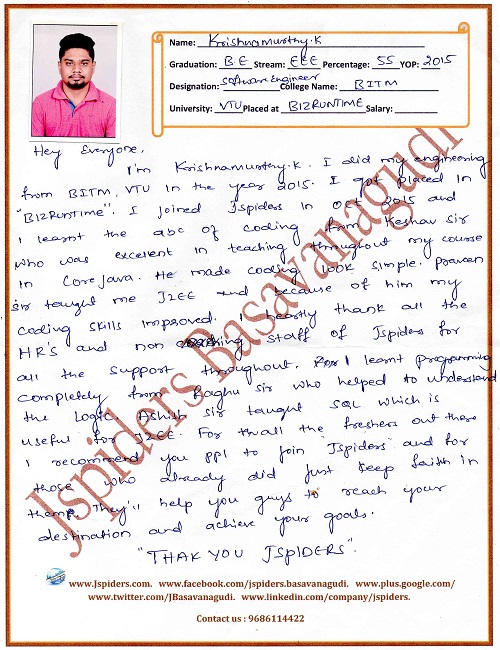 Name: Krishnamurthy.K
Graduation: B.E Stream: EEE Percentage: 55 YOP: 2015
Designation: Software Engineer College Name: BITM
University: VTU Placed at BIZRUNTIME Salary:
Hey Everyone,
I'm Krishnamurthy.K. I did my engineering
from BITM, VTU in the year 2015. I got placed in
"BIZRUNTIME". I joined Jspiders in Oct 2015 and
I learnt the abc of coding from Keshav sir
who was excellent in teaching throughout my course
in Core Java. He made coding look simple. Praveen
sir taught me J2EE and because of him my
coding skills improved. I heartly thank all the
HR's and non staff of Jspiders for
all the support throughout. I learnt programming
completely from Raghu sir who helped to understand
the Logic. Ashish sir taught SQL which is
useful for J2EE. For all the freshers out there
I recommend you ppl to join "Jspiders" and for
those who already did just keep faith in
them. They'll help you guys to reach your
destination and achieve your goals.
"THAK YOU JSPIDERS".
Jspiders Basavanagudi
www.Jspiders.com. www.facebook.com/jspiders.basavanagudi. www.plus.google.com/
www.twitter.com/JBasavanagudi. www.linkedin.com/company/jspiders.
Contact us : 9686114422